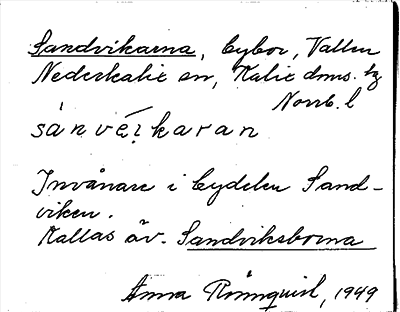 Sandvikarna, bybor, Vallen
Nederkalix sn, Kalix doms. hg
Norrb. l
sánvé́ikaran
Invånare i bydelen Sand-
viken.
Kallas äv. Sandviksborna
Anna Rönnquist, 1949